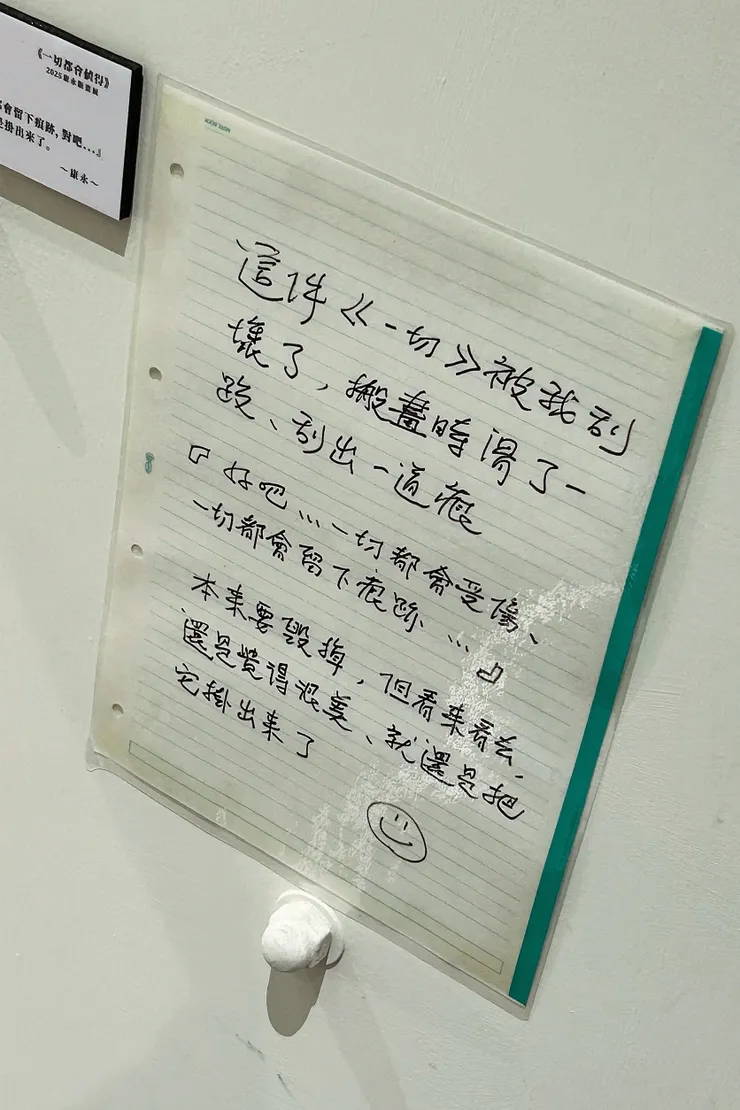 《一切都會值得》
2025康永個畫展
會留下痕跡，對吧...』
是掛出來了。
～康永～
這件《一切》被我刮
壞了，搬畫時滑了一
跤、刮出一道痕
『好吧...一切都會受傷、
一切都會留下痕跡...』
本来要毀掉，但看来看去，
還是覺得很美、就還是把
它掛出来了